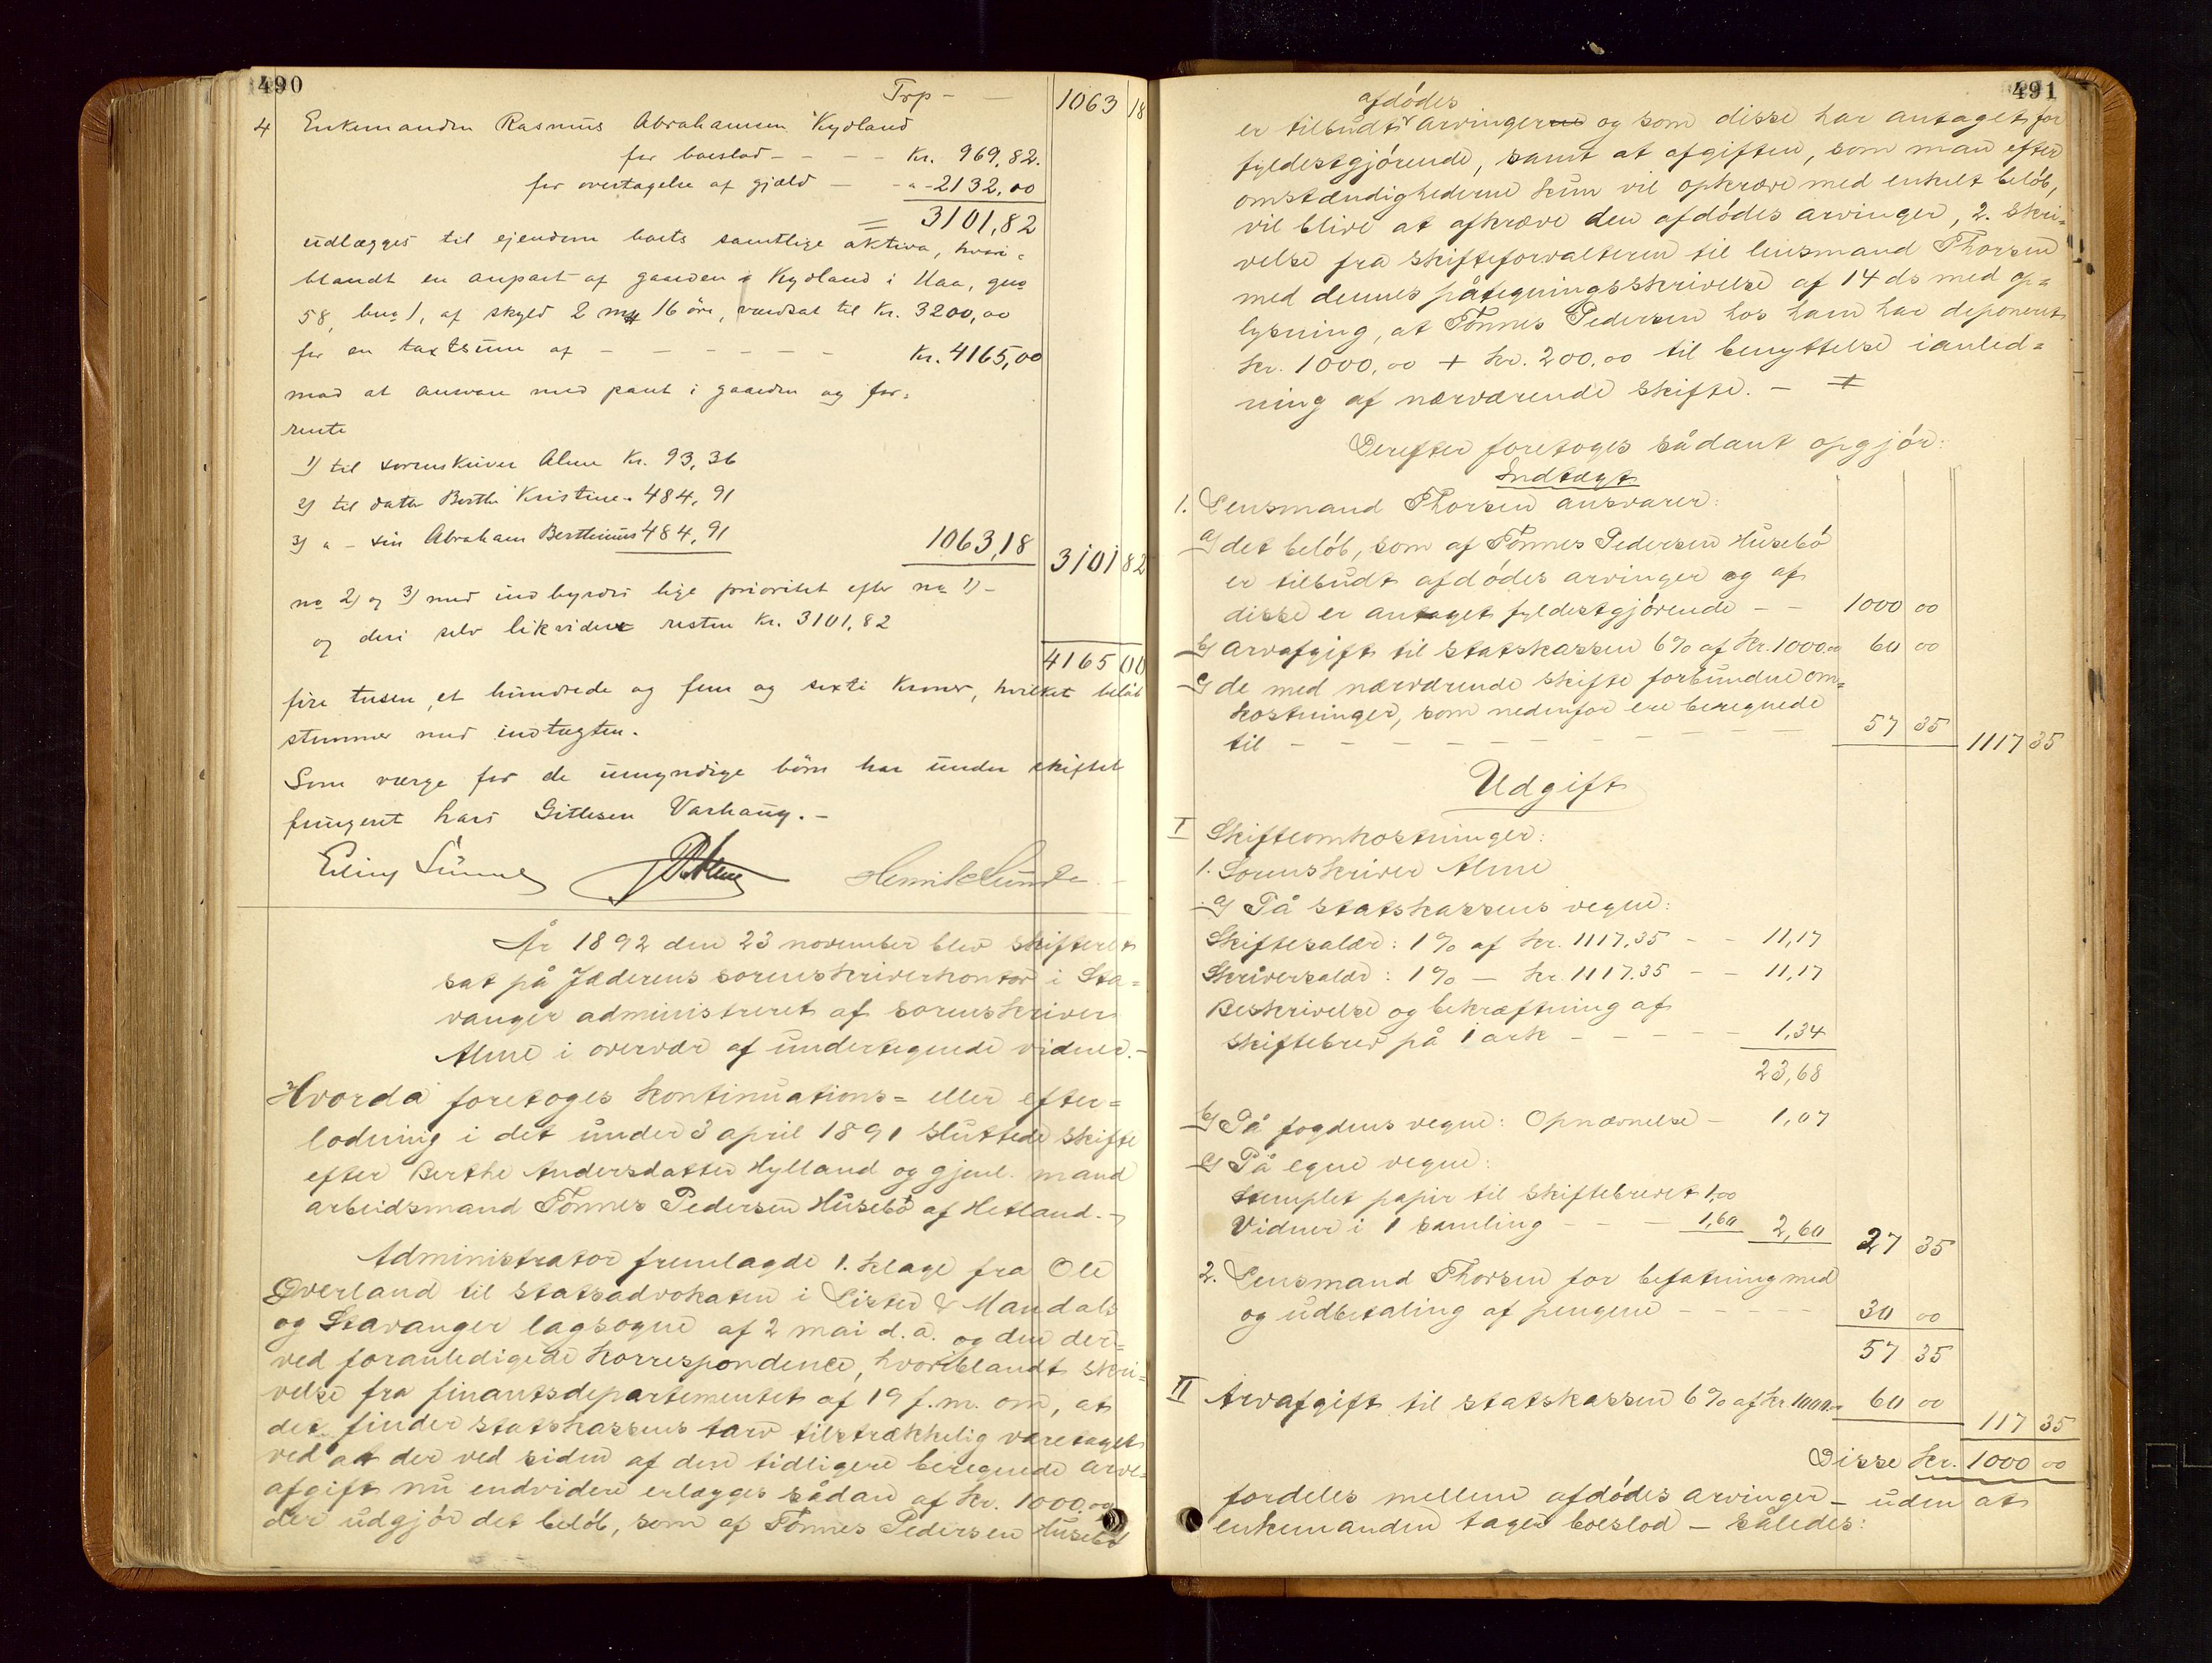 490
Trp - — 1063 18
4 Enkemanden Rasmus Abrahamsen Kydland
for boeslod - - - - Kr. 969,82.
for overtagelse af gjæld — - " - 2132,00
= 3101,82
udlægges til ejendom boets samtlige aktiva, hvori-
blandt en anpart af gaarden Kydland i Haa, gno
58, bno 1, af skyld 2 mk 16 øre, værdsat til Kr. 3200,00
for en taxtsum af - — — — — — Kr. 4165,00
mod at ansvare med pant i gaarden og for-
rente
1) til sorenskriver Alme Kr. 93,36
2) til datter Berthe Kristine " 484,91
3) " - søn Abraham Berthinius 484,91 1063,18 3101 82
no 2) og 3) med indbyrdes lige prioritet efter no 1) -
og deri selv likvidere resten Kr. 3101,82
4165 00
fire tusen, et hundrede og fem og sexti Kroner, hvilket beløb
stemmer med indtægten.
Som værge for de umyndige börn har under skiftet
fungeret Lars Gitlesen Varhaug. -
År 1892 den 23 november blev skifteret
sat på Jæderens sorenskriverkontor i Sta-
vanger administreret af sorenskriver
Alme i overvær af undertegnede vidner. -
Hvorda foretoges kontinuations= eller efter-
lodning i det under 3 april 1891 sluttede skifte
efter Berthe Andersdatter Hylland og gjenl. mand
arbeidsmand Tönnes Pedersen Husebö af Hetland. -
Administrator fremlagde 1. klage fra Ole
Överland til statsadvokaten i Lister & Mandals
og Stavanger lagsogne af 2 mai d.a. og den der-
ved foranledigede korrespondence, hvoriblandt skri-
velse fra finantsdepartementet af 19 f.m. om, at
det finder statskassens tarv tilstrækkelig varetaget
ved at der ved siden af den tidligere beregnede arve-
afgift nu endvidere erlægges sådan af kr. 1000,00
der udgjör det belöb, som af Tönnes Pedersen Husebö
491
afdödes
er tilbudt arvingerne og som disse har antaget for
fyldestgjörende, samt at afgiften, som man efter
omstændighederne kun vil opkræve med enkelt belöb,
vil blive at afkræve den afdödes arvinger, 2. skri-
velse fra skifteforvalteren til lensmand Thorsen
med dennes påtegningsskrivelse af 14 ds med op-
lysning, at Tönnes Pedersen hos ham har deponeret
kr. 1000,00 + kr. 200,00 til benyttelse i anled-
ning af nærværende skifte. -
Derefter foretoges sådant opgjör:
Indtægt
1. Lensmand Thorsen ansvarer:
a) det belöb, som af Tönnes Pedersen Husebö
er tilbudt afdödes arvinger og af
disse er antaget fyldestgjörende - - 1000 00
b) arvafgift til statskassen 6% af kr. 1000,00 60 00
c) de med nærværende skifte forbundne om-
kostninger, som nedenfor ere beregnede
til - - - - - - - - - - 57 35 1117 35
Udgift
I Skifteomkostninger:
1. Sorenskriver Alme
a) På statskassens vegne:
Skiftesalær: 1% af kr. 1117,35 - - 11,17
Skriversalær: 1% — kr. 1117,35 - - 11,17
Beskrivelse og bekræftning af
skiftebrev på 1 ark - - - - - 1,34
23,68
b) På fogdens vegne: Opnævnelse - 1,07
c) På egne vegne:
stemplet papir til skiftebrevet 1,00
Vidner i 1 samling - - - 1,60 2,60 27 35
2. Lensmand Thorsen for befatning med
og udbetaling af pengene - - - - - 30 00
57 35
II Arvafgift til statskassen 6% af kr 1000,00 60 00
117 35
Disse kr. 1000 00
fordeles mellem afdödes arvinger - uden at
enkemanden tager boeslod - således: